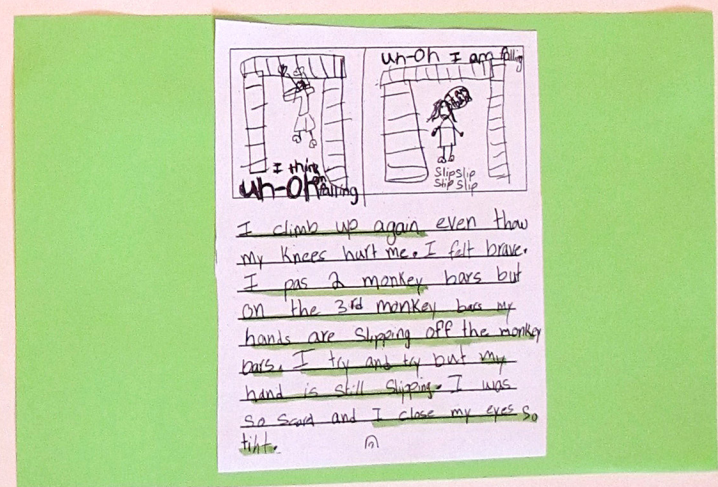 uh-oh I am falling
I think
uh-oh am falling
SlipSlip
Slip Slip
I climb up again even thow
my knees hurt me. I felt brave.
I pas 2 monkey bars but
on the 3rd monkey bars my
hands are slipping off the monkey
bars. I try and try but my
hand is still slipping. I was
so scard and I close my eyes so
tiht.